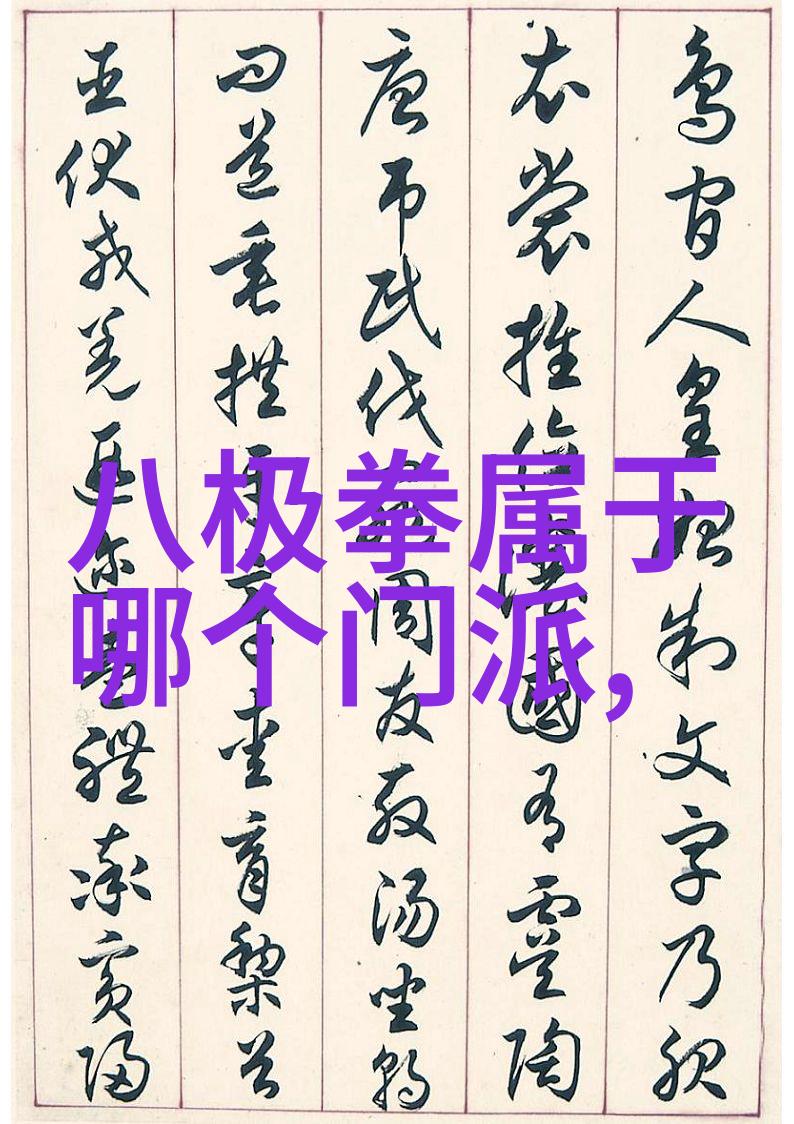 八极拳属于
哪个门派,
鳥官人皇始制文字乃服
衣裳推位讓國有虞陶
唐吊民伐罪周發殷湯坐朝
問道垂拱平章愛育黎首
臣伏戎羌遐邇壹體率賓歸